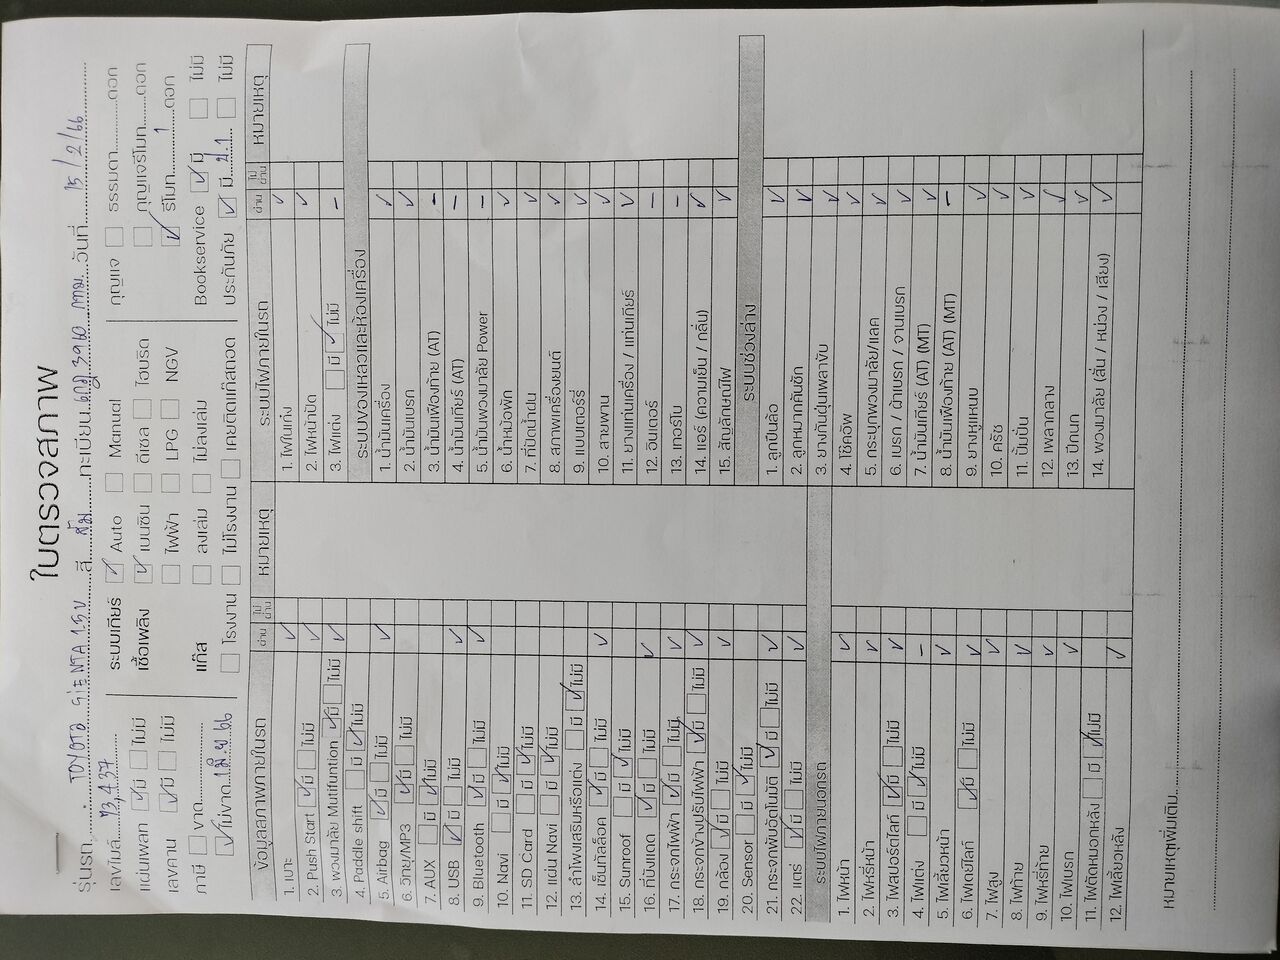 ใบตรวจสภาพ
รุ่นรถ. TOYOTA SIENTA 1.5V สี ส้ม ทะเบียน 3960 กทม. วันที่ 15/2/66
เลขไมล์ 73,437 ระบบเกียร์ ✓ Auto Manual กุญแจ ธรรมดา ดอก
แผ่นเพลท ✓ มี ไม่มี เชื้อเพลิง ✓ เบนซิน ดีเซล ไฮบริด กุญแจรีโมท ดอก
เลขคาน ✓ มี ไม่มี ไฟฟ้า LPG NGV ✓ รีโมท 1 ดอก
ภาษี ขาด แก๊ส ลงเล่ม ไม่ลงเล่ม Bookservice ✓ มี ไม่มี
✓ ไม่ขาด 1 เม.ย 66 โรงงาน ไม่โรงงาน เคยติดแก๊สถอด ประกันภัย ✓ มี ป.1 ไม่มี
ข้อมูลสภาพภายในรถ ผ่าน ไม่ผ่าน หมายเหตุ
1. เบาะ ✓
2. Push Start ✓ มี ไม่มี ✓
3. พวงมาลัย Mutifuntion ✓ มี ไม่มี ✓
4. Paddle shift มี ✓ ไม่มี
5. Airbag ✓ มี ไม่มี ✓
6. วิทยุ/MP3 ✓ มี ไม่มี
7. AUX มี ✓ ไม่มี
8. USB ✓ มี ไม่มี ✓
9. Bluetooth ✓ มี ไม่มี ✓
10. Navi มี ✓ ไม่มี
11. SD Card มี ✓ ไม่มี
12. แผ่น Navi มี ✓ ไม่มี
13. ลำโพงเสริมหรือแต่ง มี ✓ ไม่มี
14. เซ็นทัลล็อค ✓ มี ไม่มี ✓
15. Sunroof มี ✓ ไม่มี
16. ที่บังแดด ✓ มี ไม่มี ✓
17. กระจกไฟฟ้า ✓ มี ไม่มี ✓
18. กระจกข้างปรับไฟฟ้า ✓ มี ไม่มี ✓
19. กล้อง ✓ มี ไม่มี ✓
20. Sensor มี ✓ ไม่มี
21. กระจกพับอัตโนมัติ ✓ มี ไม่มี ✓
22. แตร ✓ มี ไม่มี ✓
ระบบไฟภายนอกรถ
1. ไฟหน้า ✓
2. ไฟหรี่หน้า ✓
3. ไฟสปอร์ตไลท์ ✓ มี ไม่มี ✓
4. ไฟแต่ง มี ✓ ไม่มี -
5. ไฟเลี้ยวหน้า ✓
6. ไฟเดย์ไลท์ ✓ มี ไม่มี ✓
7. ไฟสูง ✓
8. ไฟท้าย ✓
9. ไฟหรี่ท้าย ✓
10. ไฟเบรก ✓
11. ไฟตัดหมอกหลัง มี ✓ ไม่มี
12. ไฟเลี้ยวหลัง ✓
ระบบไฟภายในรถ ผ่าน ไม่ผ่าน หมายเหตุ
1. ไฟในเก๋ง ✓
2. ไฟหน้าปัด ✓
3. ไฟแต่ง มี ✓ ไม่มี -
ระบบของเหลวและห้องเครื่อง
1. น้ำมันเครื่อง ✓
2. น้ำมันเบรก ✓
3. น้ำมันเฟืองท้าย (AT) -
4. น้ำมันเกียร์ (AT) -
5. น้ำมันพวงมาลัย Power -
6. น้ำหม้อพัก ✓
7. ที่ปัดน้ำฝน ✓
8. สภาพเครื่องยนต์ ✓
9. แบตเตอร์รี่ ✓
10. สายพาน ✓
11. ยางแท่นเครื่อง / แท่นเกียร์ ✓
12. อินเตอร์ -
13. เทอร์โบ -
14. แอร์ (ความเย็น / กลิ่น) ✓
15. สัญลักษณ์ไฟ ✓
ระบบช่วงล่าง
1. ลูกปืนล้อ ✓
2. ลูกหมากคันชัก ✓
3. ยางกันฝุ่นเพลาขับ ✓
4. โช๊คอัพ ✓
5. กระบุกพวงมาลัย/แลค ✓
6. เบรก / ผ้าเบรก / จานเบรก ✓
7. น้ำมันเกียร์ (AT) (MT) ✓
8. น้ำมันเฟืองท้าย (AT) (MT) -
9. ยางหูแหนบ ✓
10. ครัช ✓
11. ปั้มปั่น ✓
12. เพลากลาง ✓
13. ปีกนก ✓
14. พวงมาลัย (สั่น / หน่วง / เสียง) ✓
หมายเหตุเพิ่มเติม